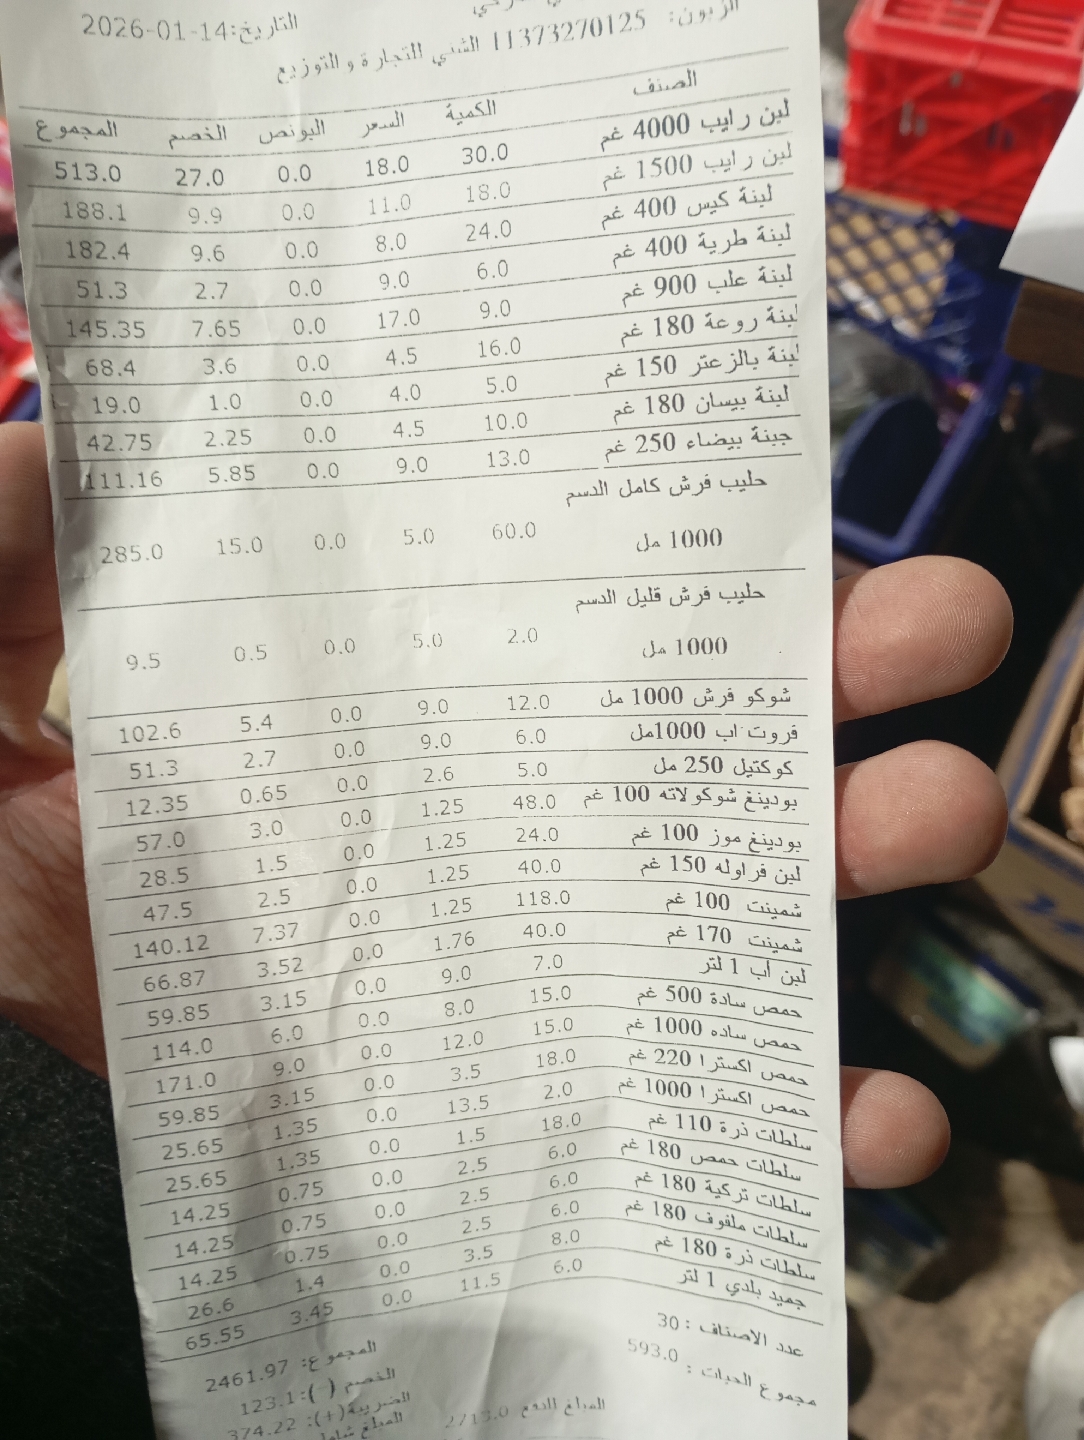 الزبون: 11373270125 الشني التجارة و التوزيع
التاريخ:2026-01-14
الصنف الكمية السعر البونص الخصم المجموع
لبن رايب 4000 غم 30.0 18.0 0.0 27.0 513.0
لبن رايب 1500 غم 18.0 11.0 0.0 9.9 188.1
لبنة كيس 400 غم 24.0 8.0 0.0 9.6 182.4
لبنة طرية 400 غم 6.0 9.0 0.0 2.7 51.3
لبنة علب 900 غم 9.0 17.0 0.0 7.65 145.35
لبنة روعة 180 غم 16.0 4.5 0.0 3.6 68.4
لبنة بالزعتر 150 غم 5.0 4.0 0.0 1.0 19.0
لبنة بيسان 180 غم 10.0 4.5 0.0 2.25 42.75
جبنة بيضاء 250 غم 13.0 9.0 0.0 5.85 111.16
حليب فرش كامل الدسم
1000 مل 60.0 5.0 0.0 15.0 285.0
حليب فرش قليل الدسم
1000 مل 2.0 5.0 0.0 0.5 9.5
شوكو فرش 1000 مل 12.0 9.0 0.0 5.4 102.6
فروت اب 1000مل 6.0 9.0 0.0 2.7 51.3
كوكتيل 250 مل 5.0 2.6 0.0 0.65 12.35
بودينغ شوكولاته 100 غم 48.0 1.25 0.0 3.0 57.0
بودينغ موز 100 غم 24.0 1.25 0.0 1.5 28.5
لبن فراوله 150 غم 40.0 1.25 0.0 2.5 47.5
شمينت 100 غم 118.0 1.25 0.0 7.37 140.12
شمينت 170 غم 40.0 1.76 0.0 3.52 66.87
لبن أب 1 لتر 7.0 9.0 0.0 3.15 59.85
حمص سادة 500 غم 15.0 8.0 0.0 6.0 114.0
حمص ساده 1000 غم 15.0 12.0 0.0 9.0 171.0
حمص اكسترا 220 غم 18.0 3.5 0.0 3.15 59.85
حمص اكسترا 1000 غم 2.0 13.5 0.0 1.35 25.65
سلطات ذرة 110 غم 18.0 1.5 0.0 1.35 25.65
سلطات حمص 180 غم 6.0 2.5 0.0 0.75 14.25
سلطات تركية 180 غم 6.0 2.5 0.0 0.75 14.25
سلطات ملفوف 180 غم 6.0 2.5 0.0 0.75 14.25
سلطات ذرة 180 غم 8.0 3.5 0.0 1.4 26.6
جميد بلدي 1 لتر 6.0 11.5 0.0 3.45 65.55
عدد الاصناف : 30
مجموع الحبات : 593.0
المجموع: 2461.97
الخصم ( ): 123.1
الضريبة(+): 374.22
المبلغ